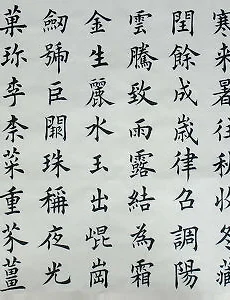 寒来暑往秋收冬藏
閏餘成歲律召調陽
雲騰致雨露結為霜
金生麗水玉出崐崗
劒號巨闕珠稱夜光
菓珎李柰菜重芥薑